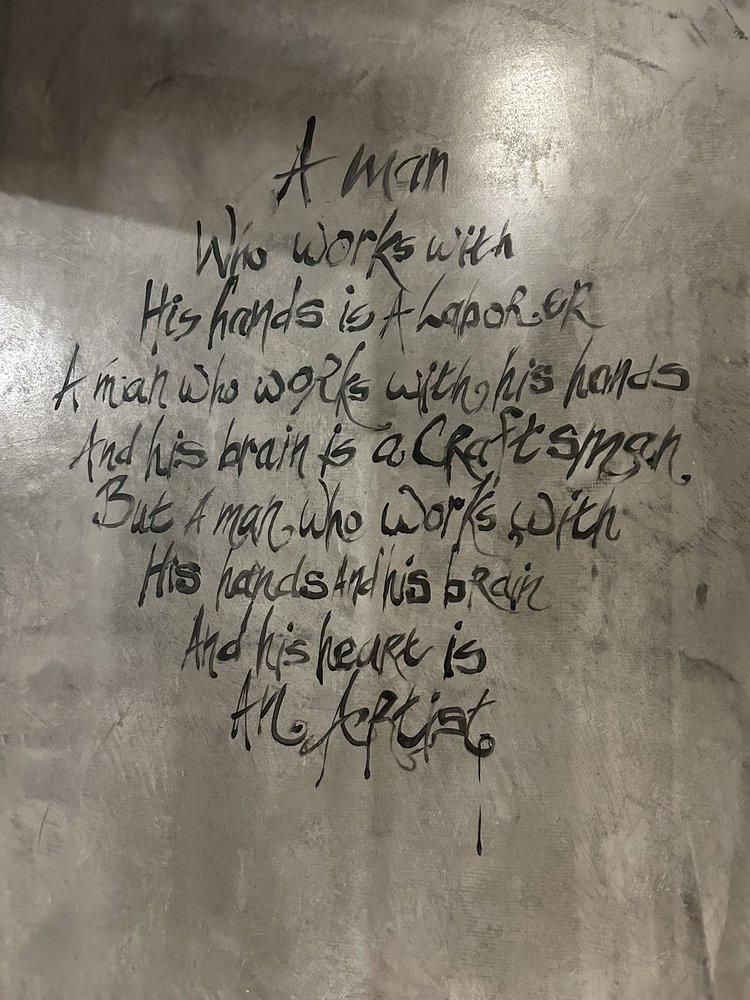 A man
Who works with
His hands is A LaboRER
A man who woRks with his hands
And his brain is a CRaftsman.
But A man who works with
His hands And his bRain
And his heaRt is
An ARtist